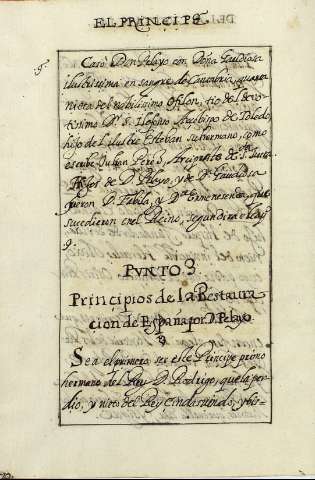 EL PRINCIPE
5.
Casò D. Pelayo con Doña Gaudiosa
ilustrissima en sangre de Cantabria, quarta
nieta del nobilissimo Ofilon, tio del devo-
tissimo Dr. S. Ilefonso Arzbispo de Toledo,
hijo de l ilustre Esteban su hermano, como
escribe Julian Perez, Arcipreste de Sta. Justa.
Hijos de D. Pelayo, y de Da. Gaudiosa
fueron D. Fabila, y Da. Ermenesenda, que
sucedieron en el Reino, segun dirà el cap.
9.
PVNTO 3.
Principios de la Restaura
cion de España por D. Pelayo.
Sea el primero ser este Principe primo
hermano del Rey D. Rodrigo, que la per-
dio, y nieto del Rey Cindasuindo, y bis-